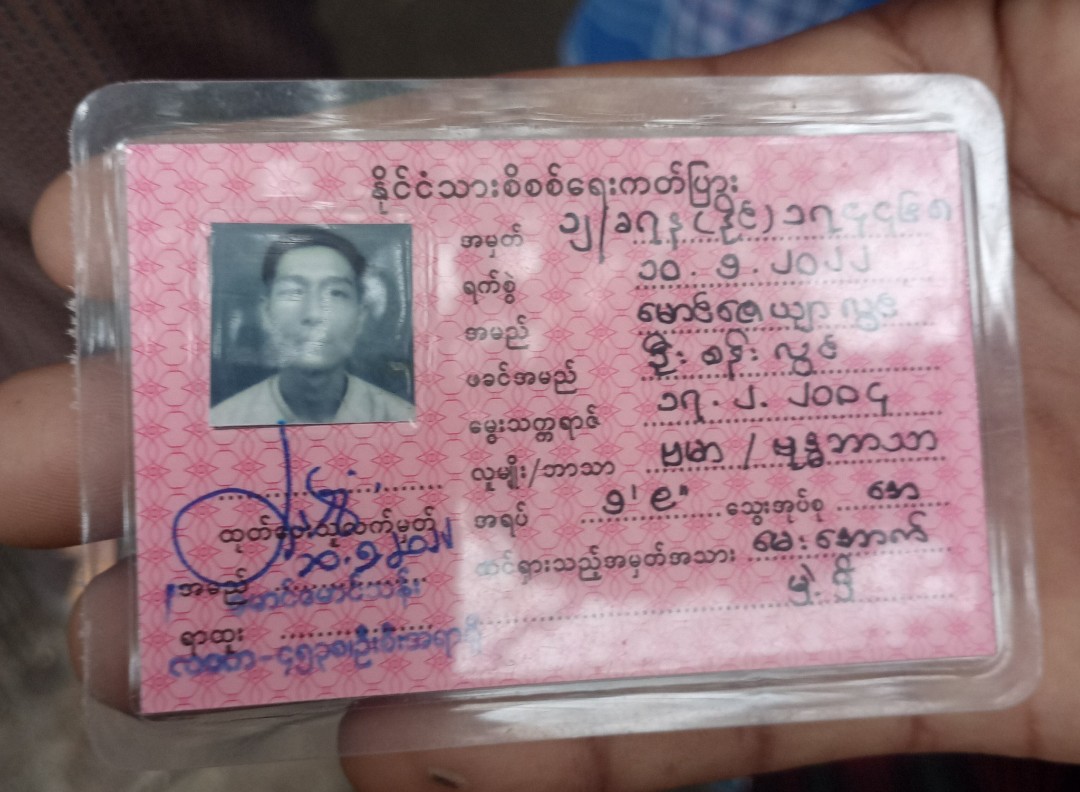 နိုင်ငံသားစိစစ်ရေးကတ်ပြား
အမှတ် ၁၂/ခရန(နိုင်)၁၇၄၄၆၈
ရက်စွဲ ၁၀.၅.၂၀၂၂
အမည် မောင်ဇေယျာလွင်
ဖခင်အမည် ဦးစန်းလွင်
မွေးသက္ကရာဇ် ၁၇.၂.၂၀၀၄
လူမျိုး/ဘာသာ ဗမာ / ဗုဒ္ဓဘာသာ
အရပ် ၅' ၉" သွေးအုပ်စု အေ
ထင်ရှားသည့်အမှတ်အသား မေးအောက်
မှဲ့ရှိ
ထုတ်ပေးသူလက်မှတ်
အမည် မောင်မောင်သန်း
ရာထူး
လဝက-၄၅၃၈၊ဦးစီးအရာရှိ